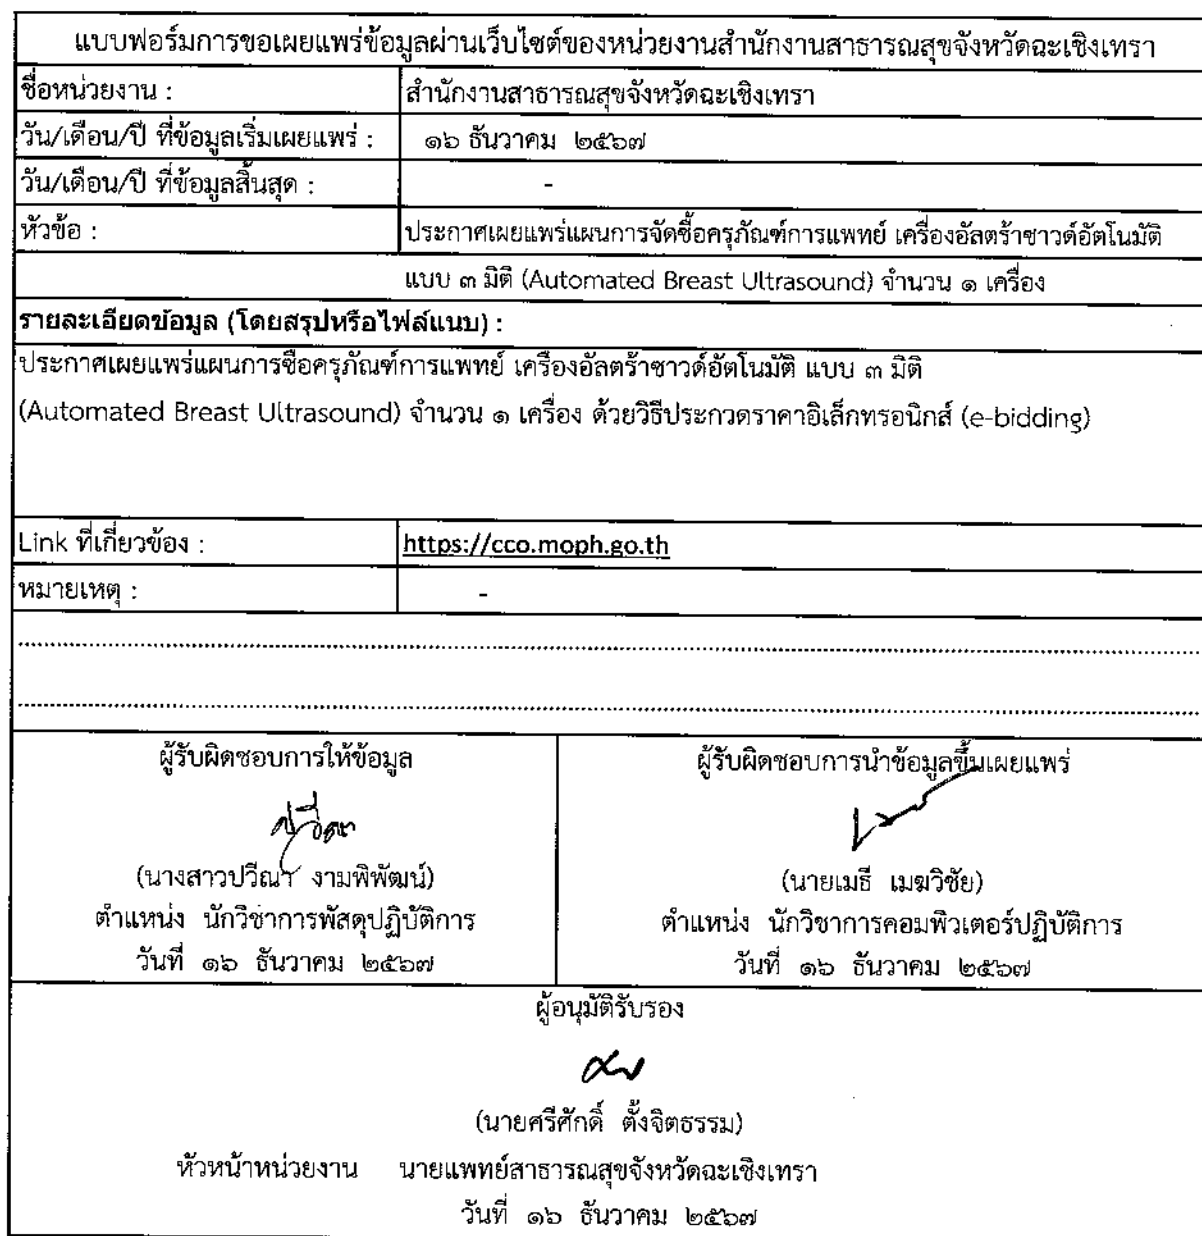 แบบฟอร์มการขอเผยแพร่ข้อมูลผ่านเว็บไซต์ของหน่วยงานสำนักงานสาธารณสุขจังหวัดฉะเชิงเทรา
ชื่อหน่วยงาน : สำนักงานสาธารณสุขจังหวัดฉะเชิงเทรา
วัน/เดือน/ปี ที่ข้อมูลเริ่มเผยแพร่ : ๑๖ ธันวาคม ๒๕๖๗
วัน/เดือน/ปี ที่ข้อมูลสิ้นสุด : -
หัวข้อ : ประกาศเผยแพร่แผนการจัดซื้อครุภัณฑ์การแพทย์ เครื่องอัลตร้าซาวด์อัตโนมัติ
แบบ ๓ มิติ (Automated Breast Ultrasound) จำนวน ๑ เครื่อง
รายละเอียดข้อมูล (โดยสรุปหรือไฟล์แนบ) :
ประกาศเผยแพร่แผนการซื้อครุภัณฑ์การแพทย์ เครื่องอัลตร้าซาวด์อัตโนมัติ แบบ ๓ มิติ
(Automated Breast Ultrasound) จำนวน ๑ เครื่อง ด้วยวิธีประกวดราคาอิเล็กทรอนิกส์ (e-bidding)
Link ที่เกี่ยวข้อง : https://cco.moph.go.th
หมายเหตุ : -
ผู้รับผิดชอบการให้ข้อมูล ผู้รับผิดชอบการนำข้อมูลขึ้นเผยแพร่
(นางสาวปวีณา งามพิพัฒน์) (นายเมธี เมฆวิชัย)
ตำแหน่ง นักวิชาการพัสดุปฏิบัติการ ตำแหน่ง นักวิชาการคอมพิวเตอร์ปฏิบัติการ
วันที่ ๑๖ ธันวาคม ๒๕๖๗ วันที่ ๑๖ ธันวาคม ๒๕๖๗
ผู้อนุมัติรับรอง
(นายศรีศักดิ์ ตั้งจิตธรรม)
หัวหน้าหน่วยงาน นายแพทย์สาธารณสุขจังหวัดฉะเชิงเทรา
วันที่ ๑๖ ธันวาคม ๒๕๖๗